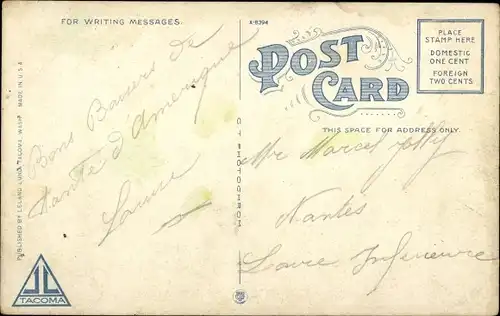 FOR WRITING MESSAGES.
A-6394
POST CARD
PLACE
STAMP HERE
DOMESTIC
ONE CENT
FOREIGN
TWO CENTS
THIS SPACE FOR ADDRESS ONLY.
Bons Baisers de
tante d'Amérique
Mr Marcel
Nantes
Loire Inférieure
PUBLISHED BY LELAND LUND, TACOMA, WASH. MADE IN U.S.A.
TACOMA